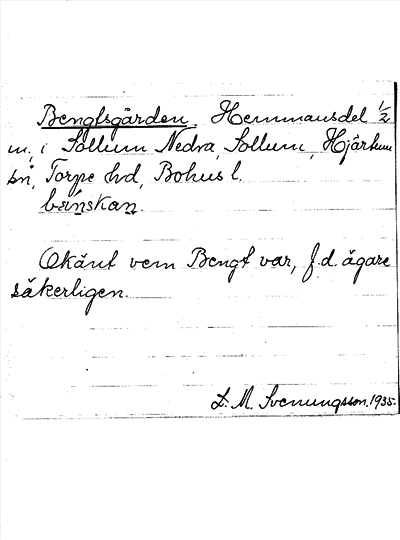 Bengtsgården, Hemmansdel 1/2
m, i Sollum Nedra, Sollum, Hjärtum
sn, Torpe hd, Bohus l.
Okänt vem Bengt var, f.d. ägare
säkerligen.
L. M. Svenungsson. 1935.